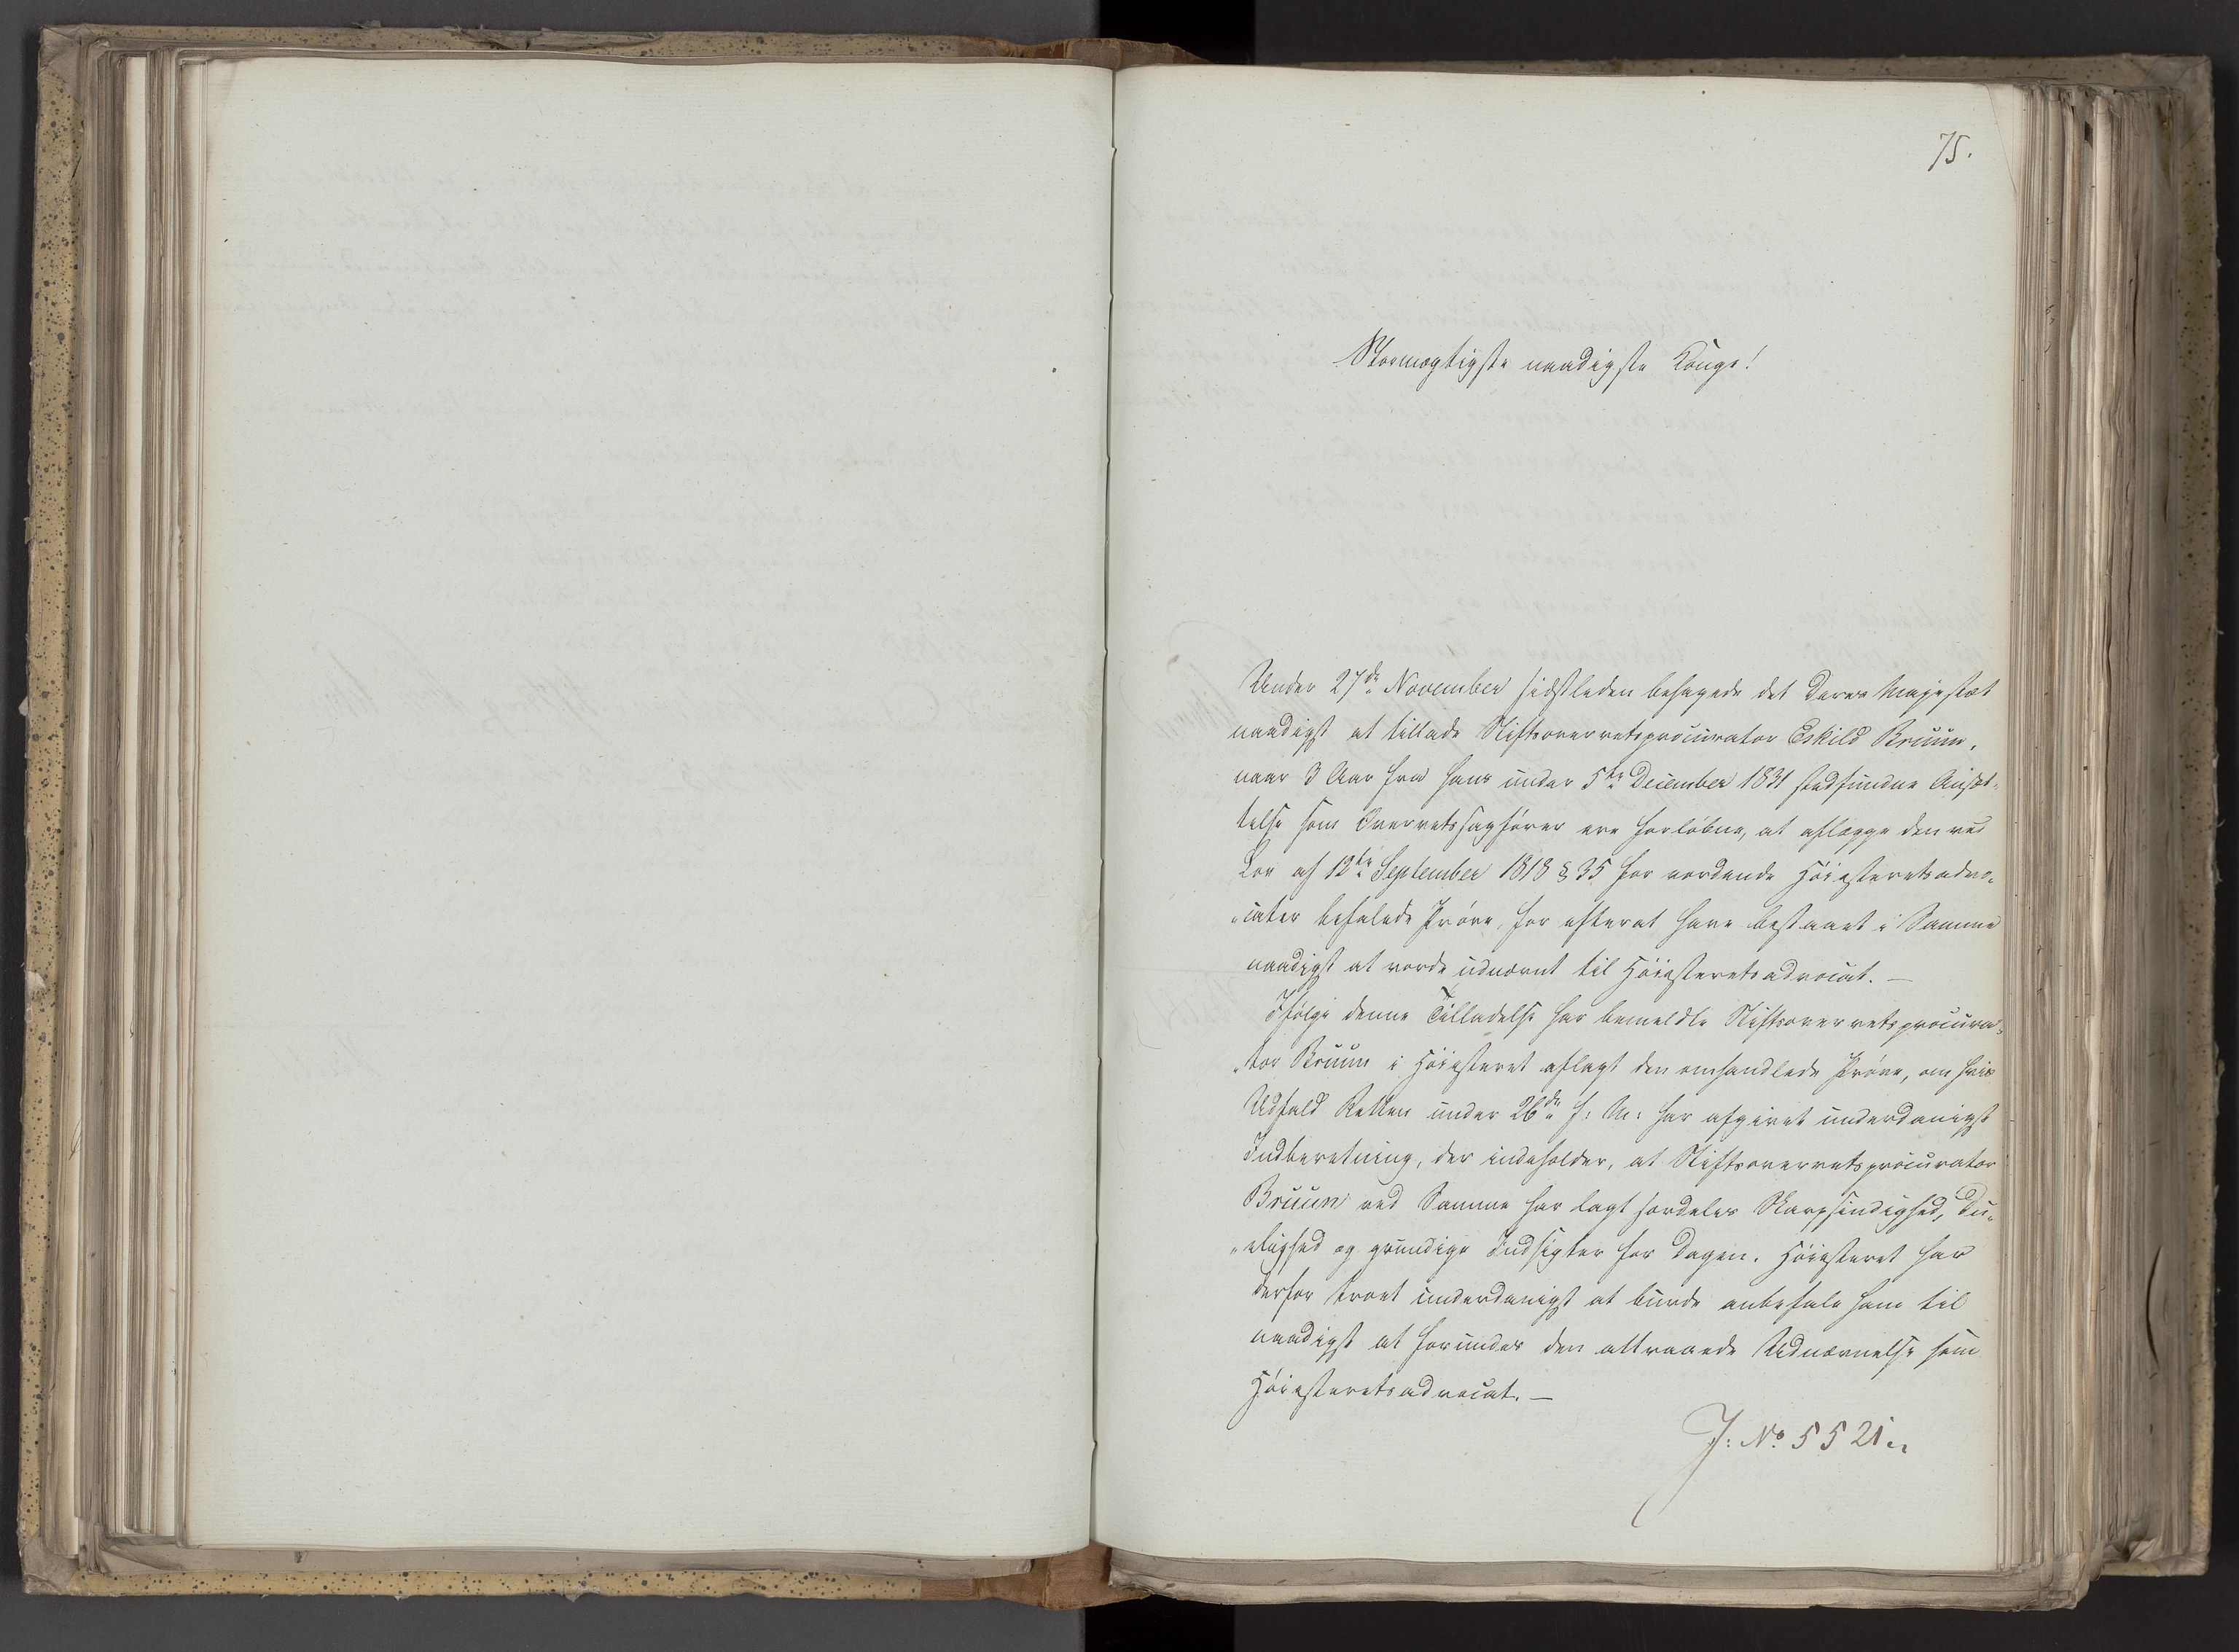 75.
Stormægtigste naadigste Konge!
Under 27de November sidstleden behagede det Deres Majestæt
naadigst at tillade Stiftsoverretsprocurator Eskild Bruun,
naar 3 Aar fra hans under 5te December 1831 stedfundne Ansæt-
telse som Overretssagfører ere forløbne, at aflægge den ved
Lov af 12te September 1818 § 35 for vordende Höiesteretsadvo-
"cater befalede Prøve, for efterat have bestaaet i Samme
naadigst at vorde udnævnt til Höiesteretsadvocat. —
Ifølge denne Tilladelse har bemeldte Stiftsoverretsprocura-
"tor Bruun i Höiesteret aflagt den omhandlede Prøve, om hvis
Udfald Retten under 26de f: M: har afgivet underdanigst
Indberetning, der indeholder, at Stiftsoverretsprocurator
Bruun ved Samme har lagt særdeles Skarpsindighed, Du-
"elighed og grundige Indsigter for Dagen. Höiesteret har
derfor troet underdanigst at burde anbefale ham til
naadigst at forundes den attraaede Udnævnelse som
Höiesteretsadvocat. —
J: No 5521